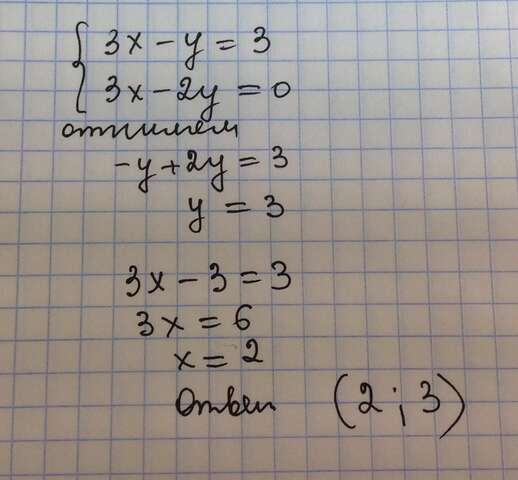 { 3x - y = 3
3x - 2y = 0
отнимем
-y + 2y = 3
y = 3
3x - 3 = 3
3x = 6
x = 2
Ответ (2 ; 3)